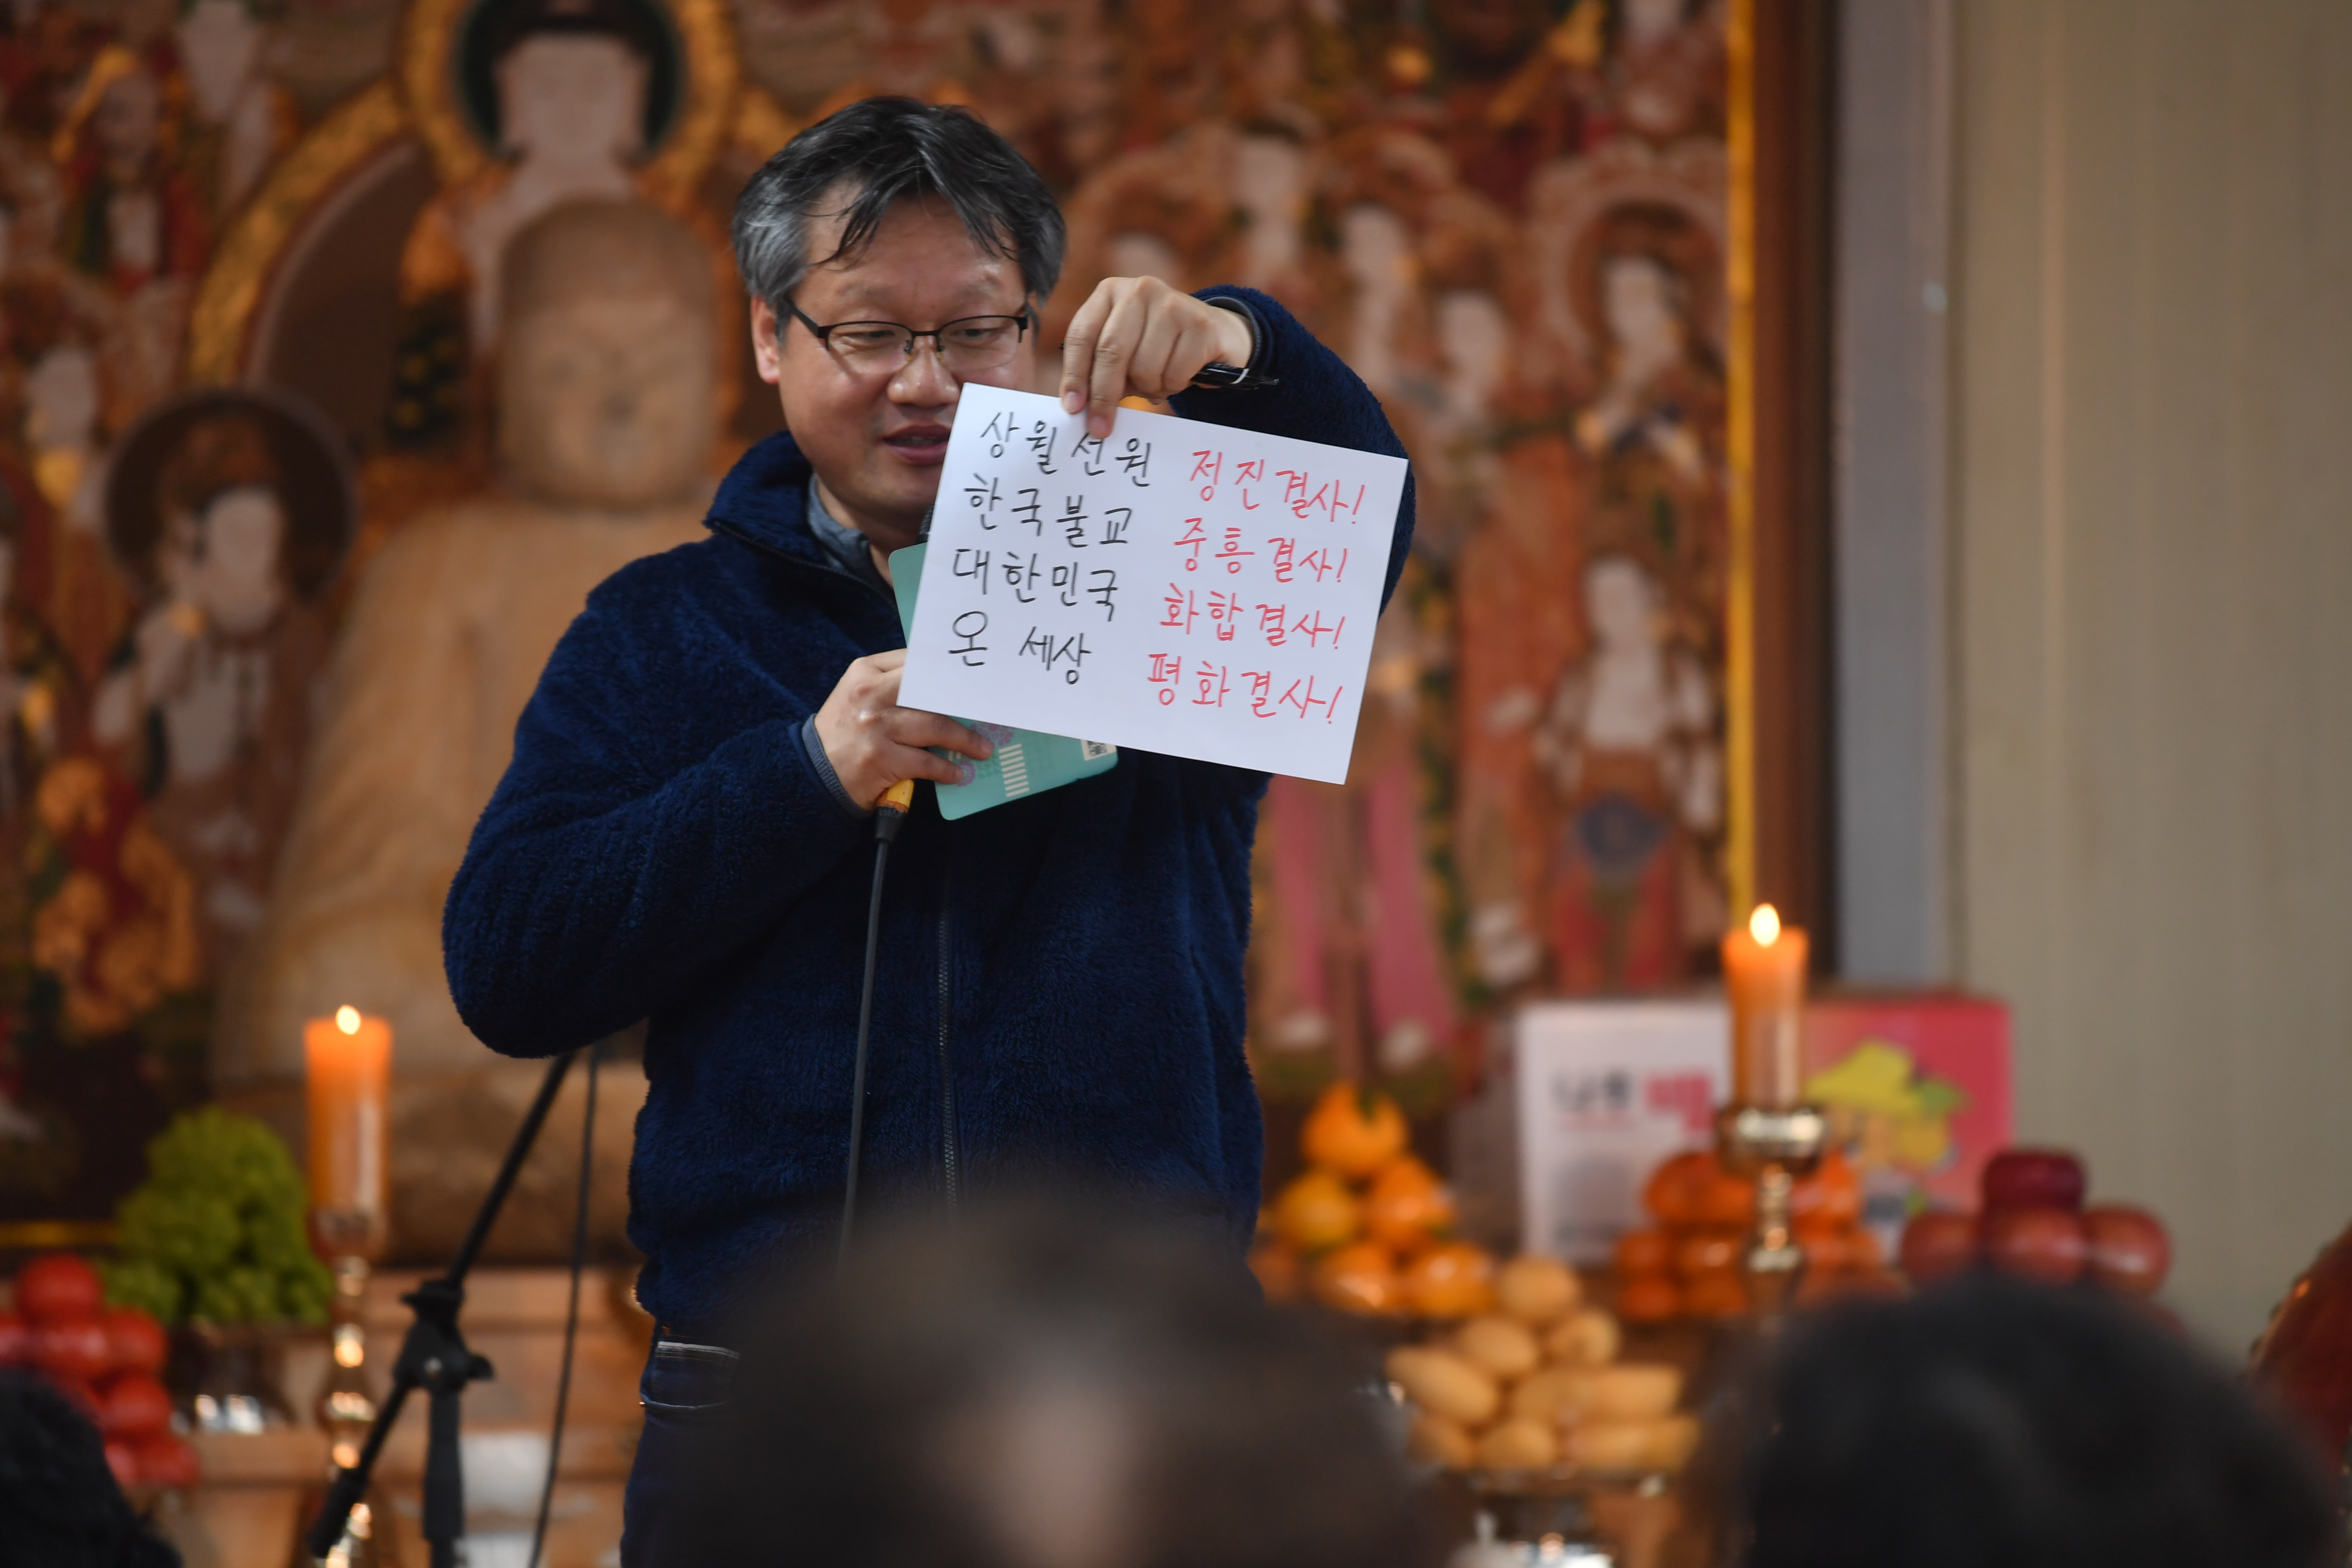 상월선원 정진결사!
한국불교 중흥결사!
대한민국 화합결사!
온 세상 평화결사!